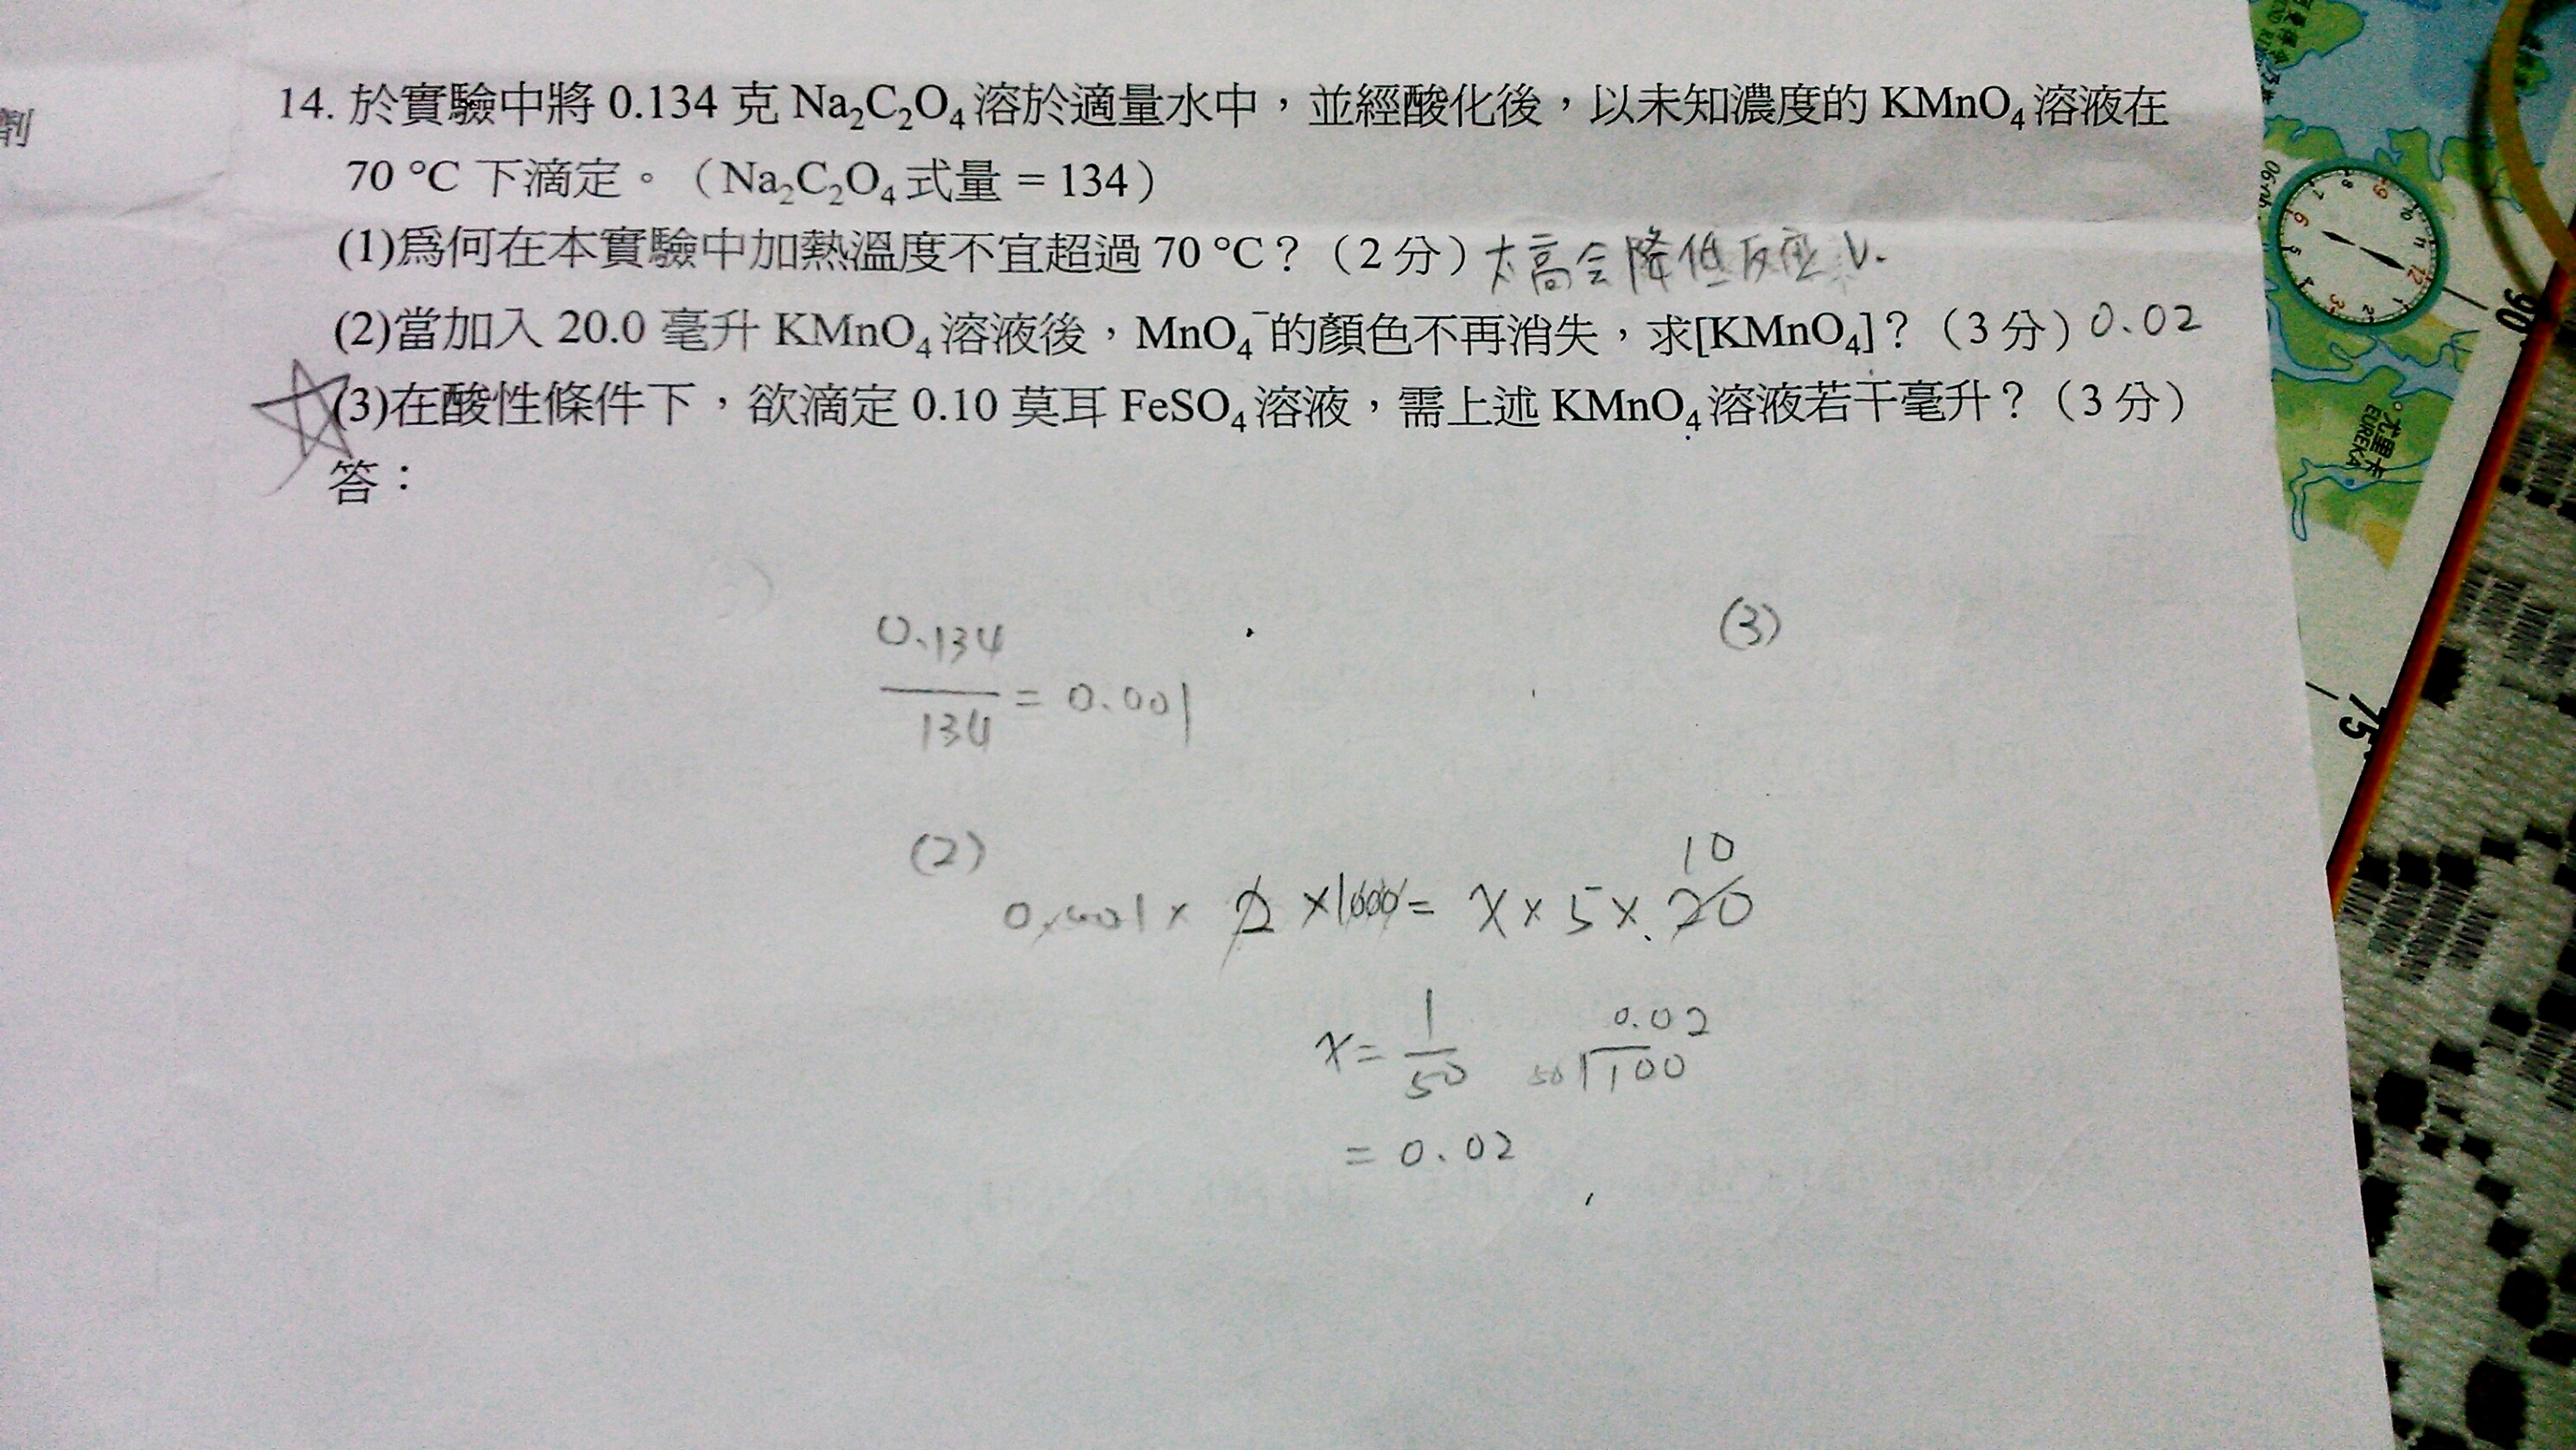 劑
14. 於實驗中將 0.134 克 Na₂C₂O₄ 溶於適量水中，並經酸化後，以未知濃度的 KMnO₄ 溶液在
70 °C 下滴定。（Na₂C₂O₄ 式量 = 134）
(1)爲何在本實驗中加熱溫度不宜超過 70 °C？（2 分）太高会降低反应 V.
(2)當加入 20.0 毫升 KMnO₄ 溶液後，MnO₄⁻ 的顏色不再消失，求[KMnO₄]？（3 分）0.02
(3)在酸性條件下，欲滴定 0.10 莫耳 FeSO₄ 溶液，需上述 KMnO₄ 溶液若干毫升？（3 分）
答：
0.134
134
= 0.001
(3)
(2)
10
0.001 × 2 ×1000 = x × 5 × 20
x = 1/50
0.02
50 100
= 0.02
尤里卡
EUREKA
90
75